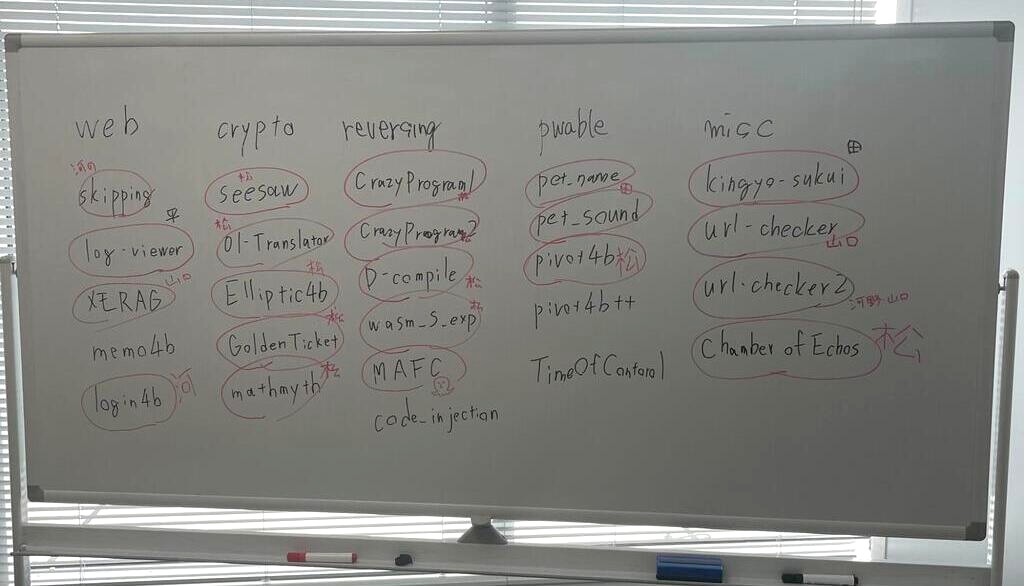 web
河口
skipping
平
log-viewer
山口
XERAG
memo4b
login4b 河
crypto
松
seesaw
松
01-Translator
松
Elliptic4b
松
GoldenTicket
松
mathmyth
reversing
CrazyProgram1
松
CrazyProgram2
松
D-compile
松
松
wasm_S_exp
MAFC
code_injection
pwable
pet_name
田
pet_sound
pivot4b 松
pivot4b++
TimeOfContorol
misc
田
kingyo-sukui
url-checker
山口
url-checker2
河野 山口
Chamber of Echos 松